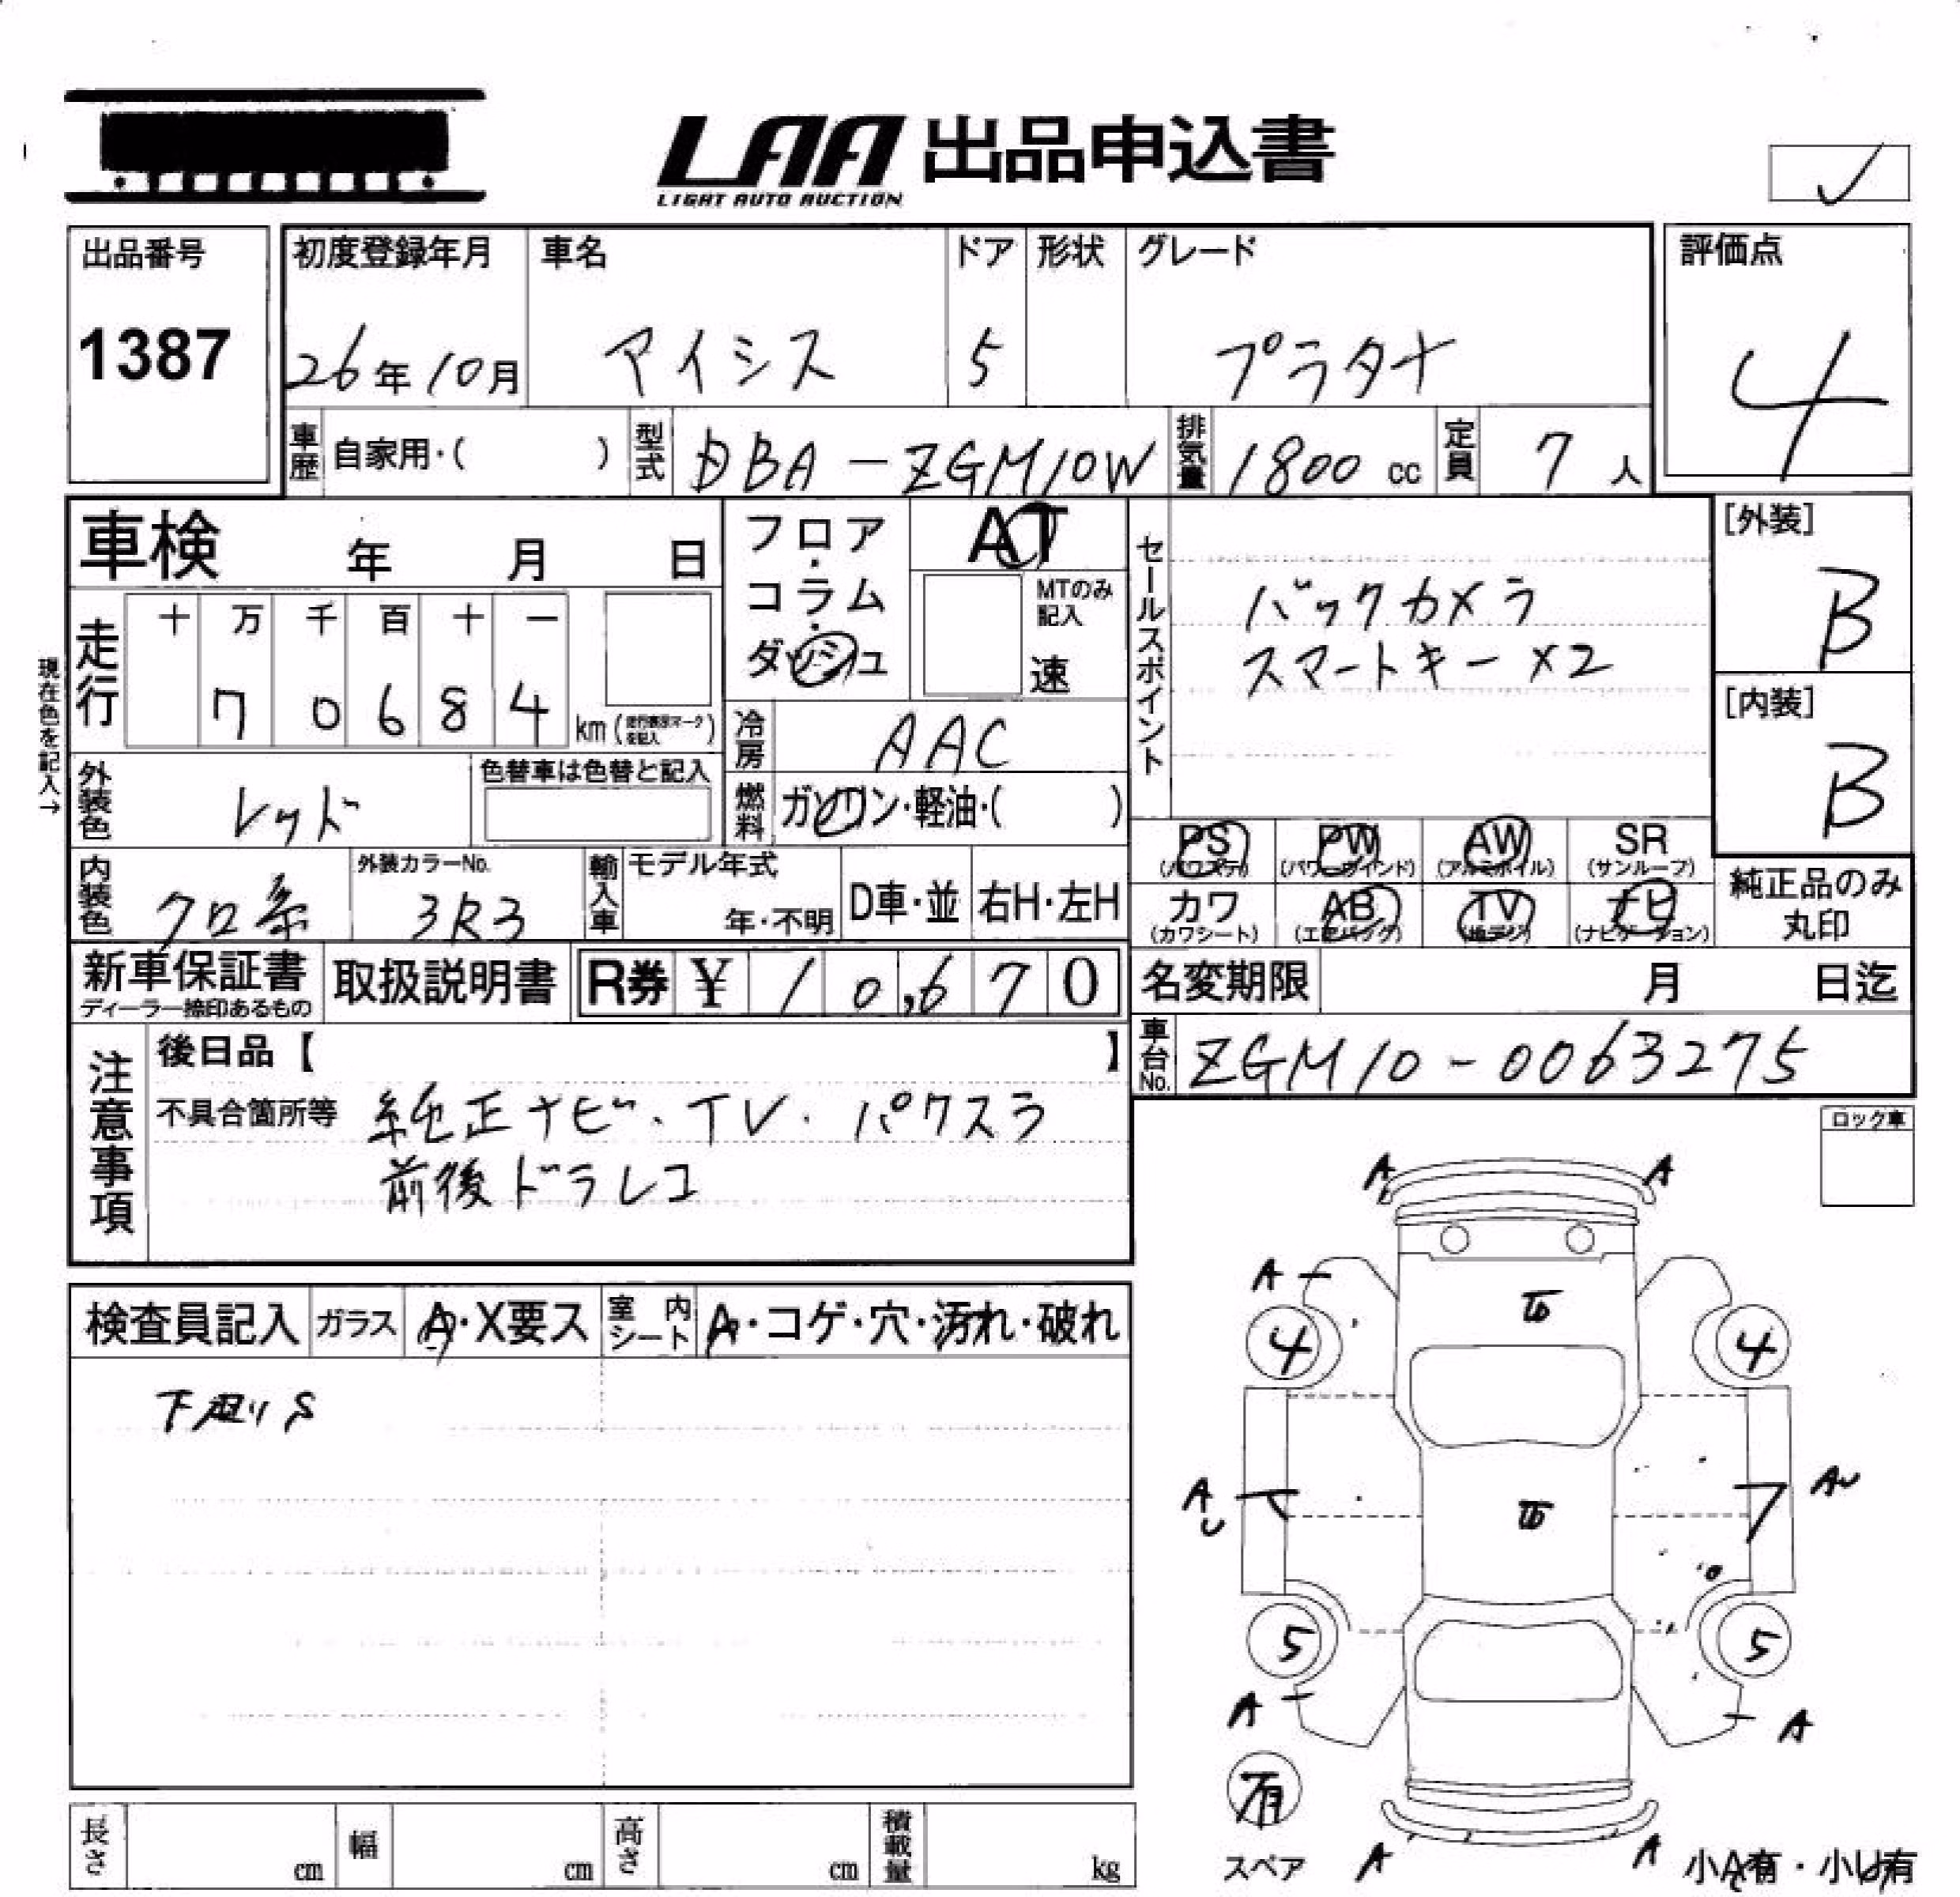 LAA 出品申込書
LIGHT AUTO AUCTION
出品番号
1387
初度登録年月
26年10月
車名
アイシス
ドア
5
形状
グレード
プラタナ
評価点
4
車歴 自家用・( )
型式 DBA-ZGM10W
排気量 1800 cc
定員 7 人
車検 年 月 日
フロア・コラム・ダッシュ
AT
MTのみ記入
速
セールスポイント
バックカメラ
スマートキー×2
[外装]
B
[内装]
B
現在色を記入→
走行
十 万 千 百 十 一
7 0 6 8 4 km (走行表示マークを記入)
冷房 AAC
外装色 レッド
色替車は色替と記入
燃料 ガソリン・軽油・( )
PS (パワステ) PW (パワーウインド) AW (アルミホイル) SR (サンルーフ)
内装色 クロ系
外装カラーNo.
3R3
輸入車 モデル年式
年・不明
D車・並
右H・左H
カワ (カワシート) AB (エアバッグ) TV (地デジ) ナビ (ナビゲーション)
純正品のみ
丸印
新車保証書
ディーラー捺印あるもの
取扱説明書
R券 ¥ 10,670
名変期限 月 日迄
車台No. ZGM10-0063275
注意事項
後日品【 】
不具合箇所等 純正ナビ・TV・パワスラ
前後ドラレコ
ロック車
検査員記入 ガラス A・X要ス 室内シート A・コゲ・穴・汚れ・破れ
下廻りS
A A
A
4 4
A
U
AU
5 5
A
A
有
スペア
A
A
小A有・小U有
長さ cm 幅 cm 高さ cm 積載量 kg